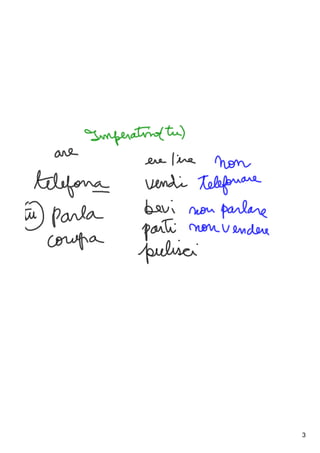 Imperativo (tu)
are ere/ire non
telefona vendi telefonare
tu) parla bevi non parlare
compa parti non vendere
pulisci
3